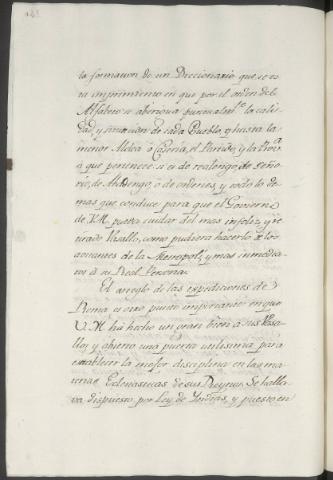 la formacion de un Diccionario que se es
ta imprimiendo en que por el orden del
Alfabeto se averigua puntualm.te la cali
dad, y situacion de cada Pueblo, y hasta la
menor Aldea o Caseria, el Partido, y la Prov.a
à que pertenece si es de realengo, de Seño
rio, de Abadengo, ò de ordenes, y todo lo de
mas que conduce para que el Govierno
de V.M. pueda cuidar del mas infeliz, y re
tirado Vasallo, como pudiera hacerlo a los
de la Metropoli, y mas inmedia
tos à su Real Persona.
El arreglo de las expediciones de
Roma es otro punto importante en que
V.M. ha hecho un gran bien a sus Vasa
llos, y abierto una puerta utilisima para
establecer la mejor disciplina en las ma
terias Eclesiasticas de sus Reynos. Se halla
va dispuesto por Ley de Yndias, y puesto en